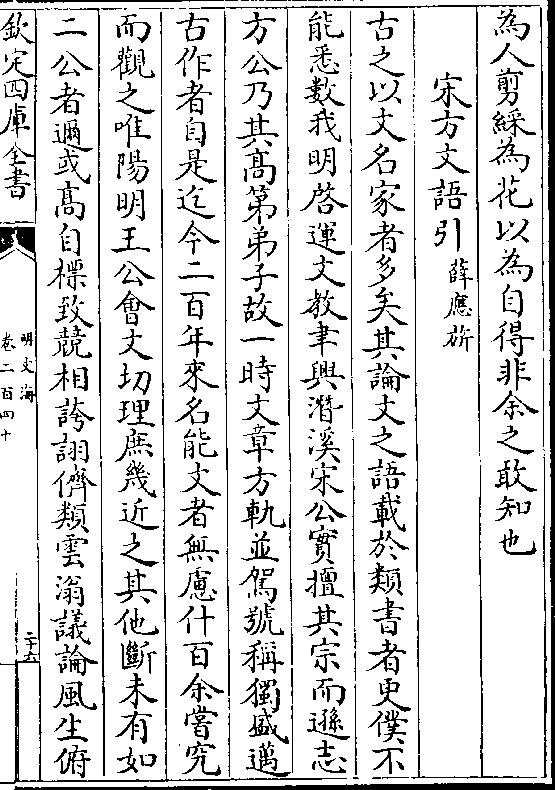 為人剪綵為花以為自得非余之敢知也
宋方文語引
薛應旂
古之以文名家者多矣其論文之語載於類書者更僕不
能悉數我明啓運文教聿興潛溪宋公實擅其宗而遜志
方公乃其髙第弟子故一時文章方軌並駕號稱獨盛邁
古作者自是迄今二百年來名能文者無慮什百余嘗究
而觀之唯陽明王公會文切理庶幾近之其他斷未有如
二公者邇或髙自標致競相誇詡儕類雲滃議論風生俯
欽定四庫全書
明文海
卷二百四十
二十六